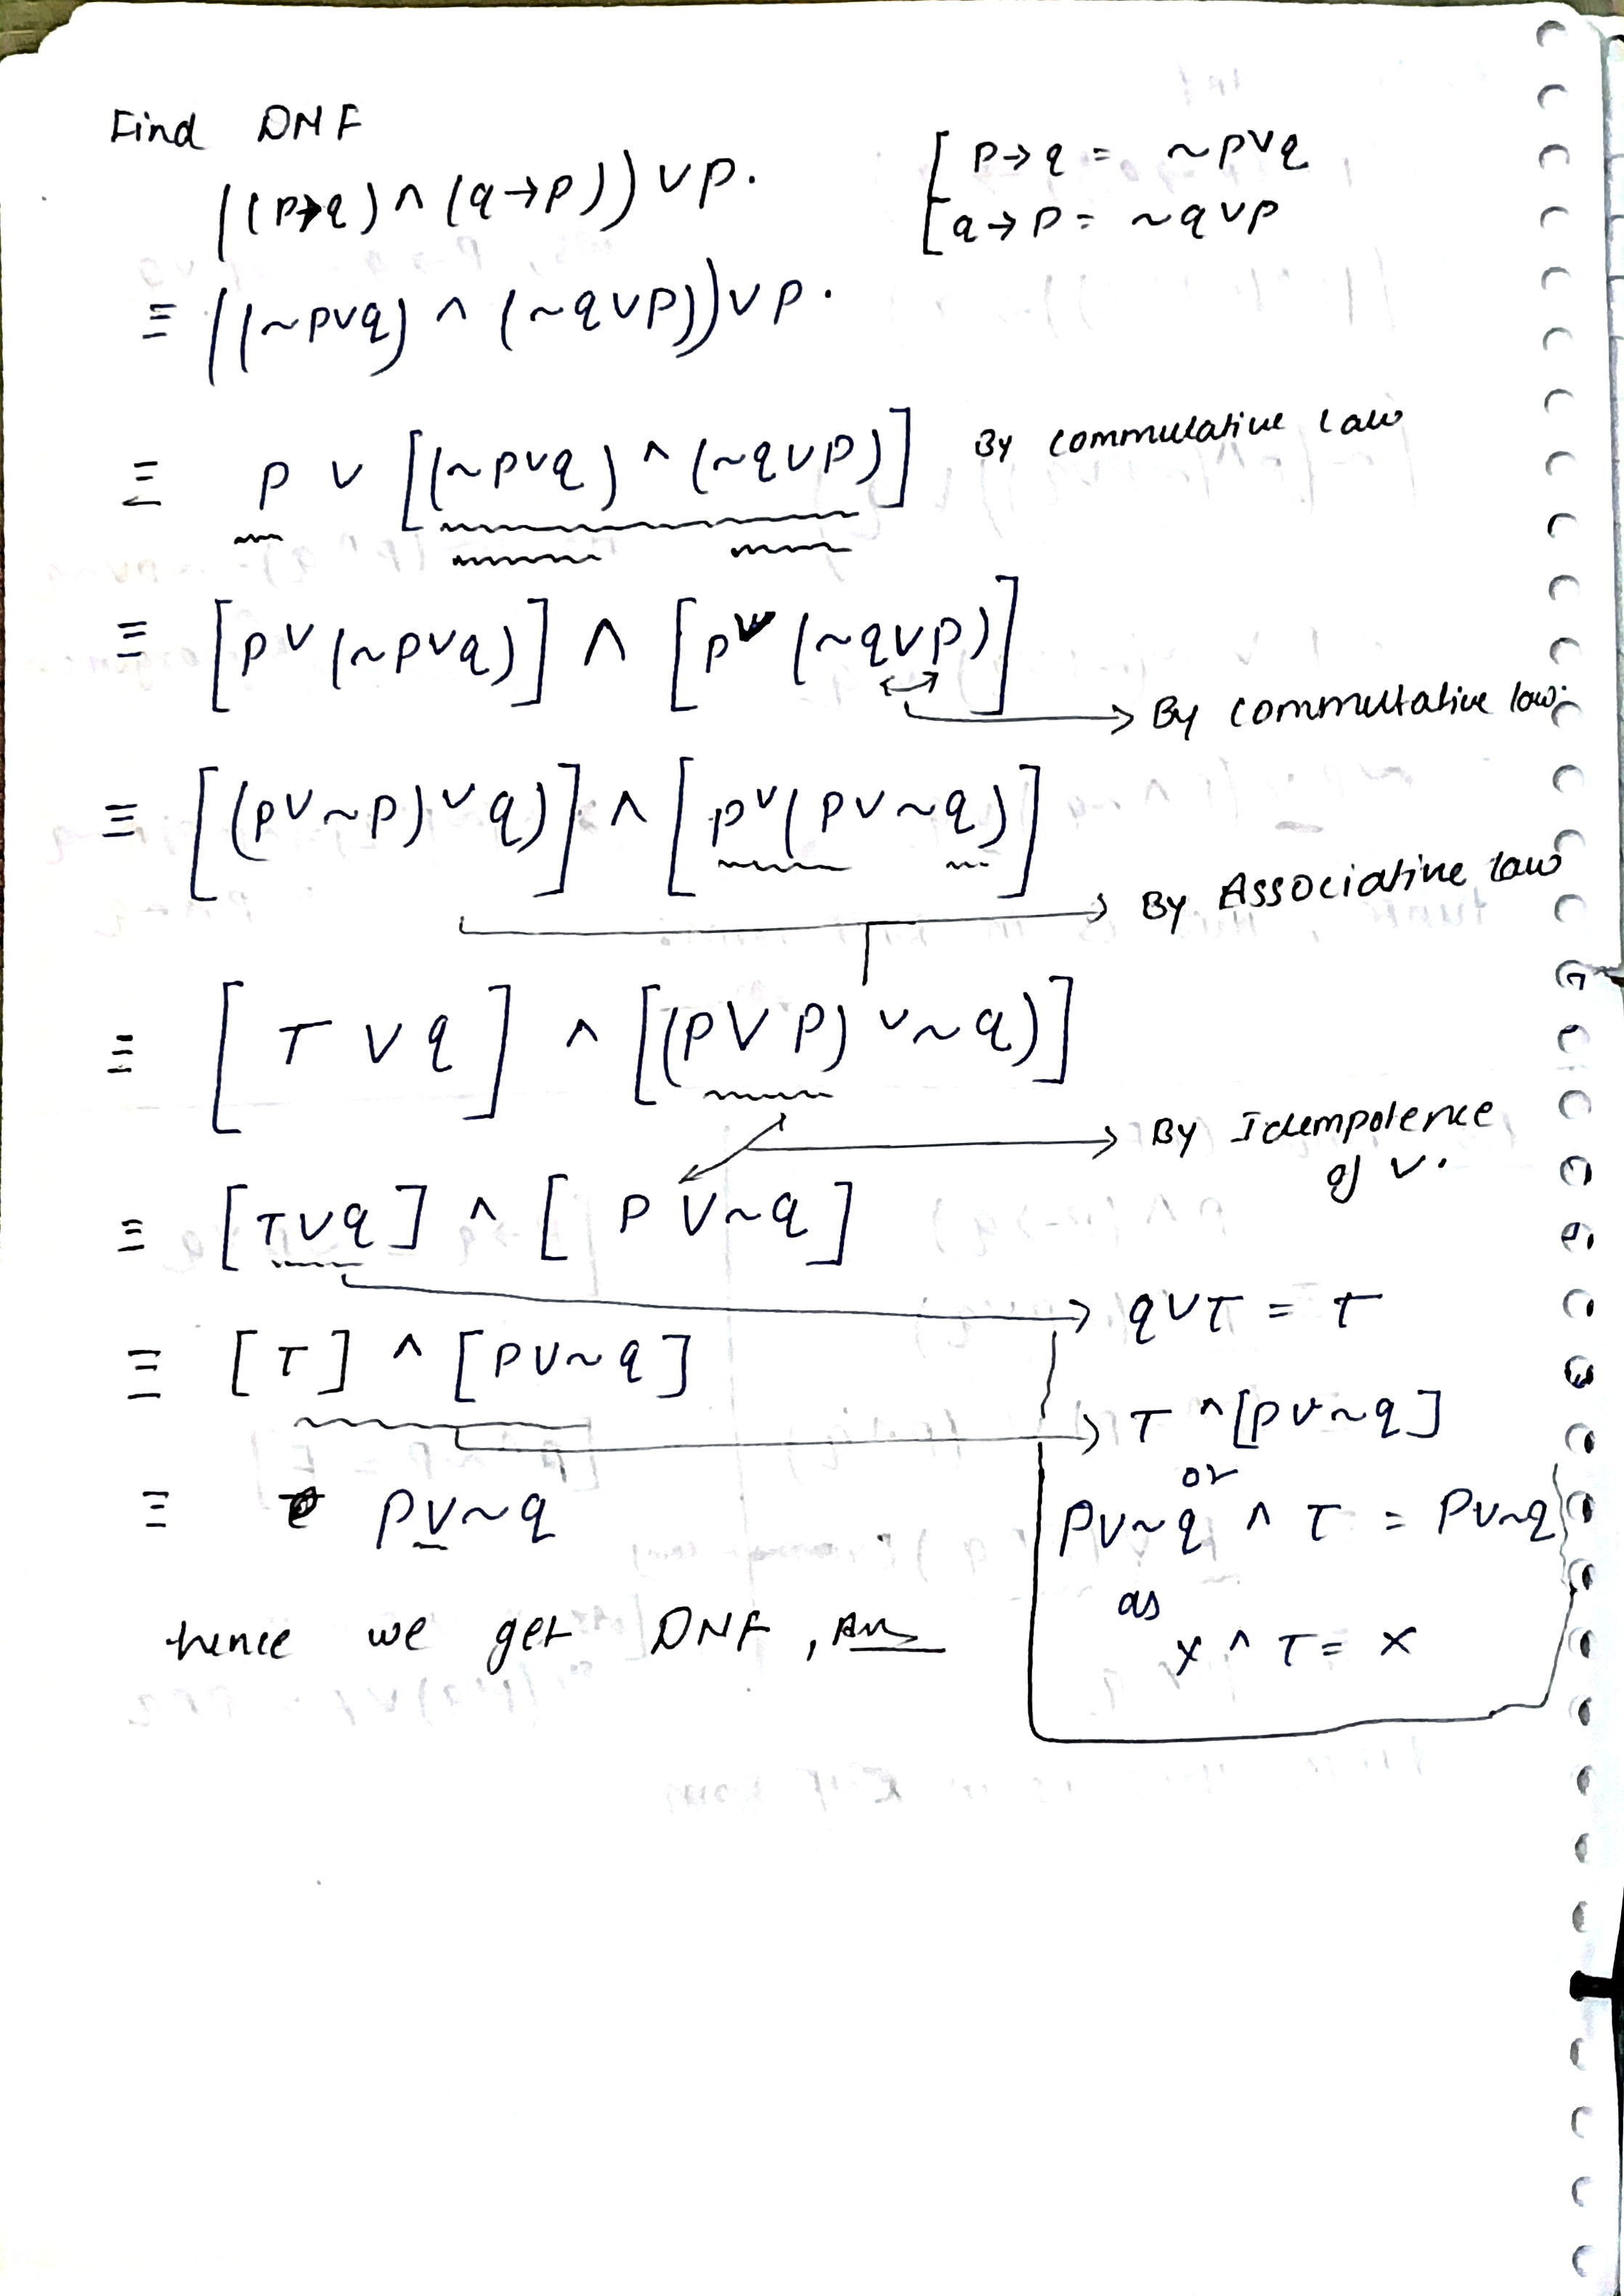 Find DNF
((p→q) ∧ (q→p)) ∨ p.
[ p→q = ~p∨q
[ q→p = ~q∨p
≡ ((~p∨q) ∧ (~q∨p)) ∨ p.
≡ p ∨ [(~p∨q) ∧ (~q∨p)] By commulative law
≡ [p∨(~p∨q)] ∧ [p∨(~q∨p)]
→ By commultative law.
≡ [(p∨~p)∨q)] ∧ [p∨(p∨~q)]
→ By Associative law
≡ [T ∨ q] ∧ [(p∨p)∨~q)]
→ By Idempotence
of ∨.
≡ [T∨q] ∧ [p∨~q]
→ q∨T = T
≡ [T] ∧ [p∨~q]
→ T ∧ [p∨~q]
or
≡ p∨~q
p∨~q ∧ T = p∨~q
as
x ∧ T = x
hence we get DNF, Ans